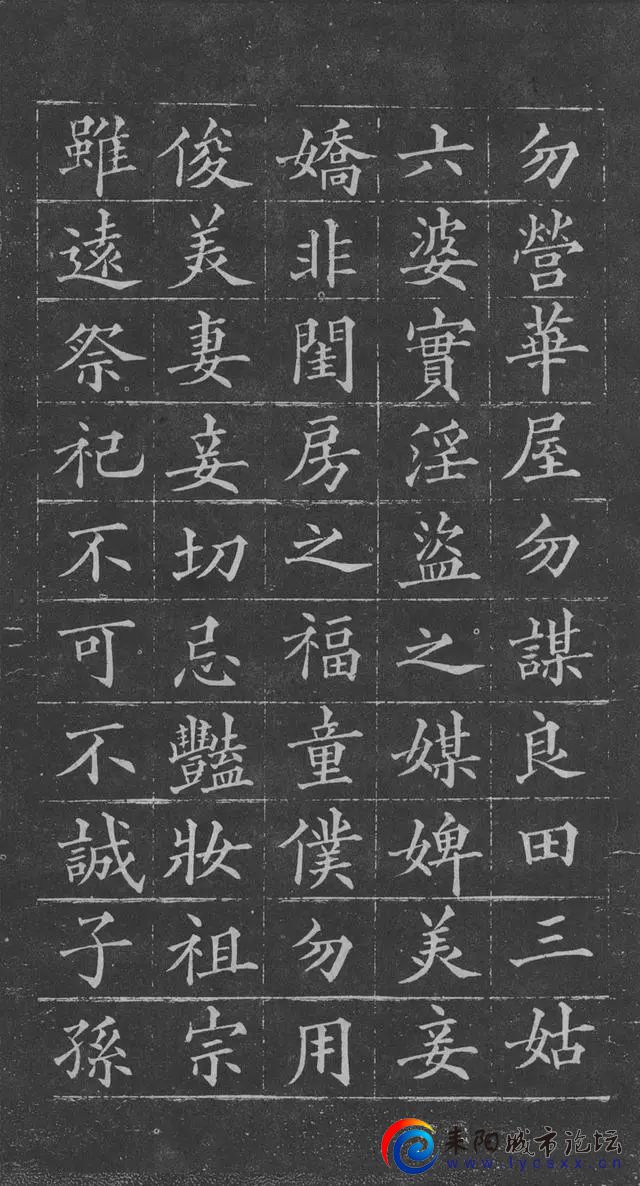 勿營華屋勿謀良田三姑
六婆實淫盜之媒婢美妾
嬌非閨房之福童僕勿用
俊美妻妾切忌豔妝祖宗
雖遠祭祀不可不誠子孫
耒阳城市论坛
www.lycsxx.cn